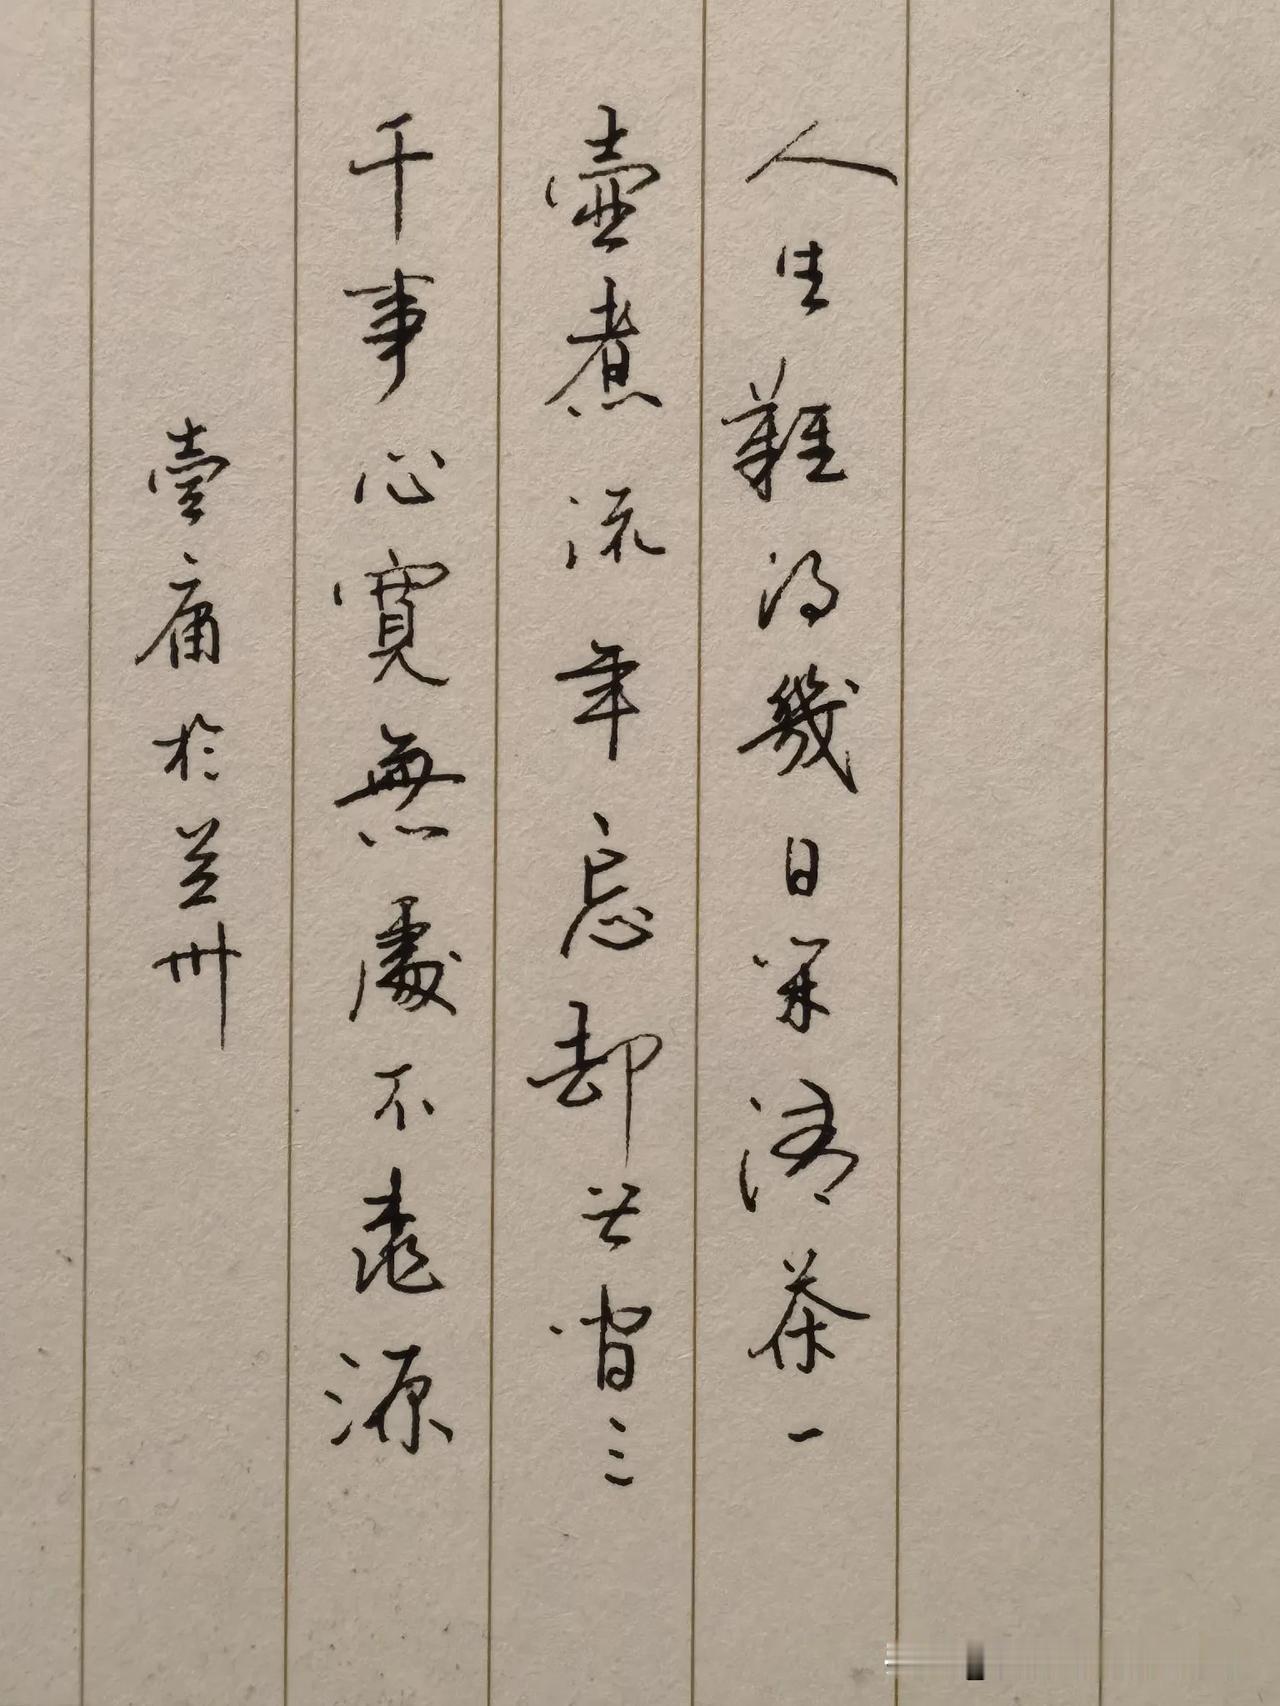 人生難得幾日閑清茶一
壺煮流年忘却世間三
千事心寬無處不桃源
壹庸於兰州